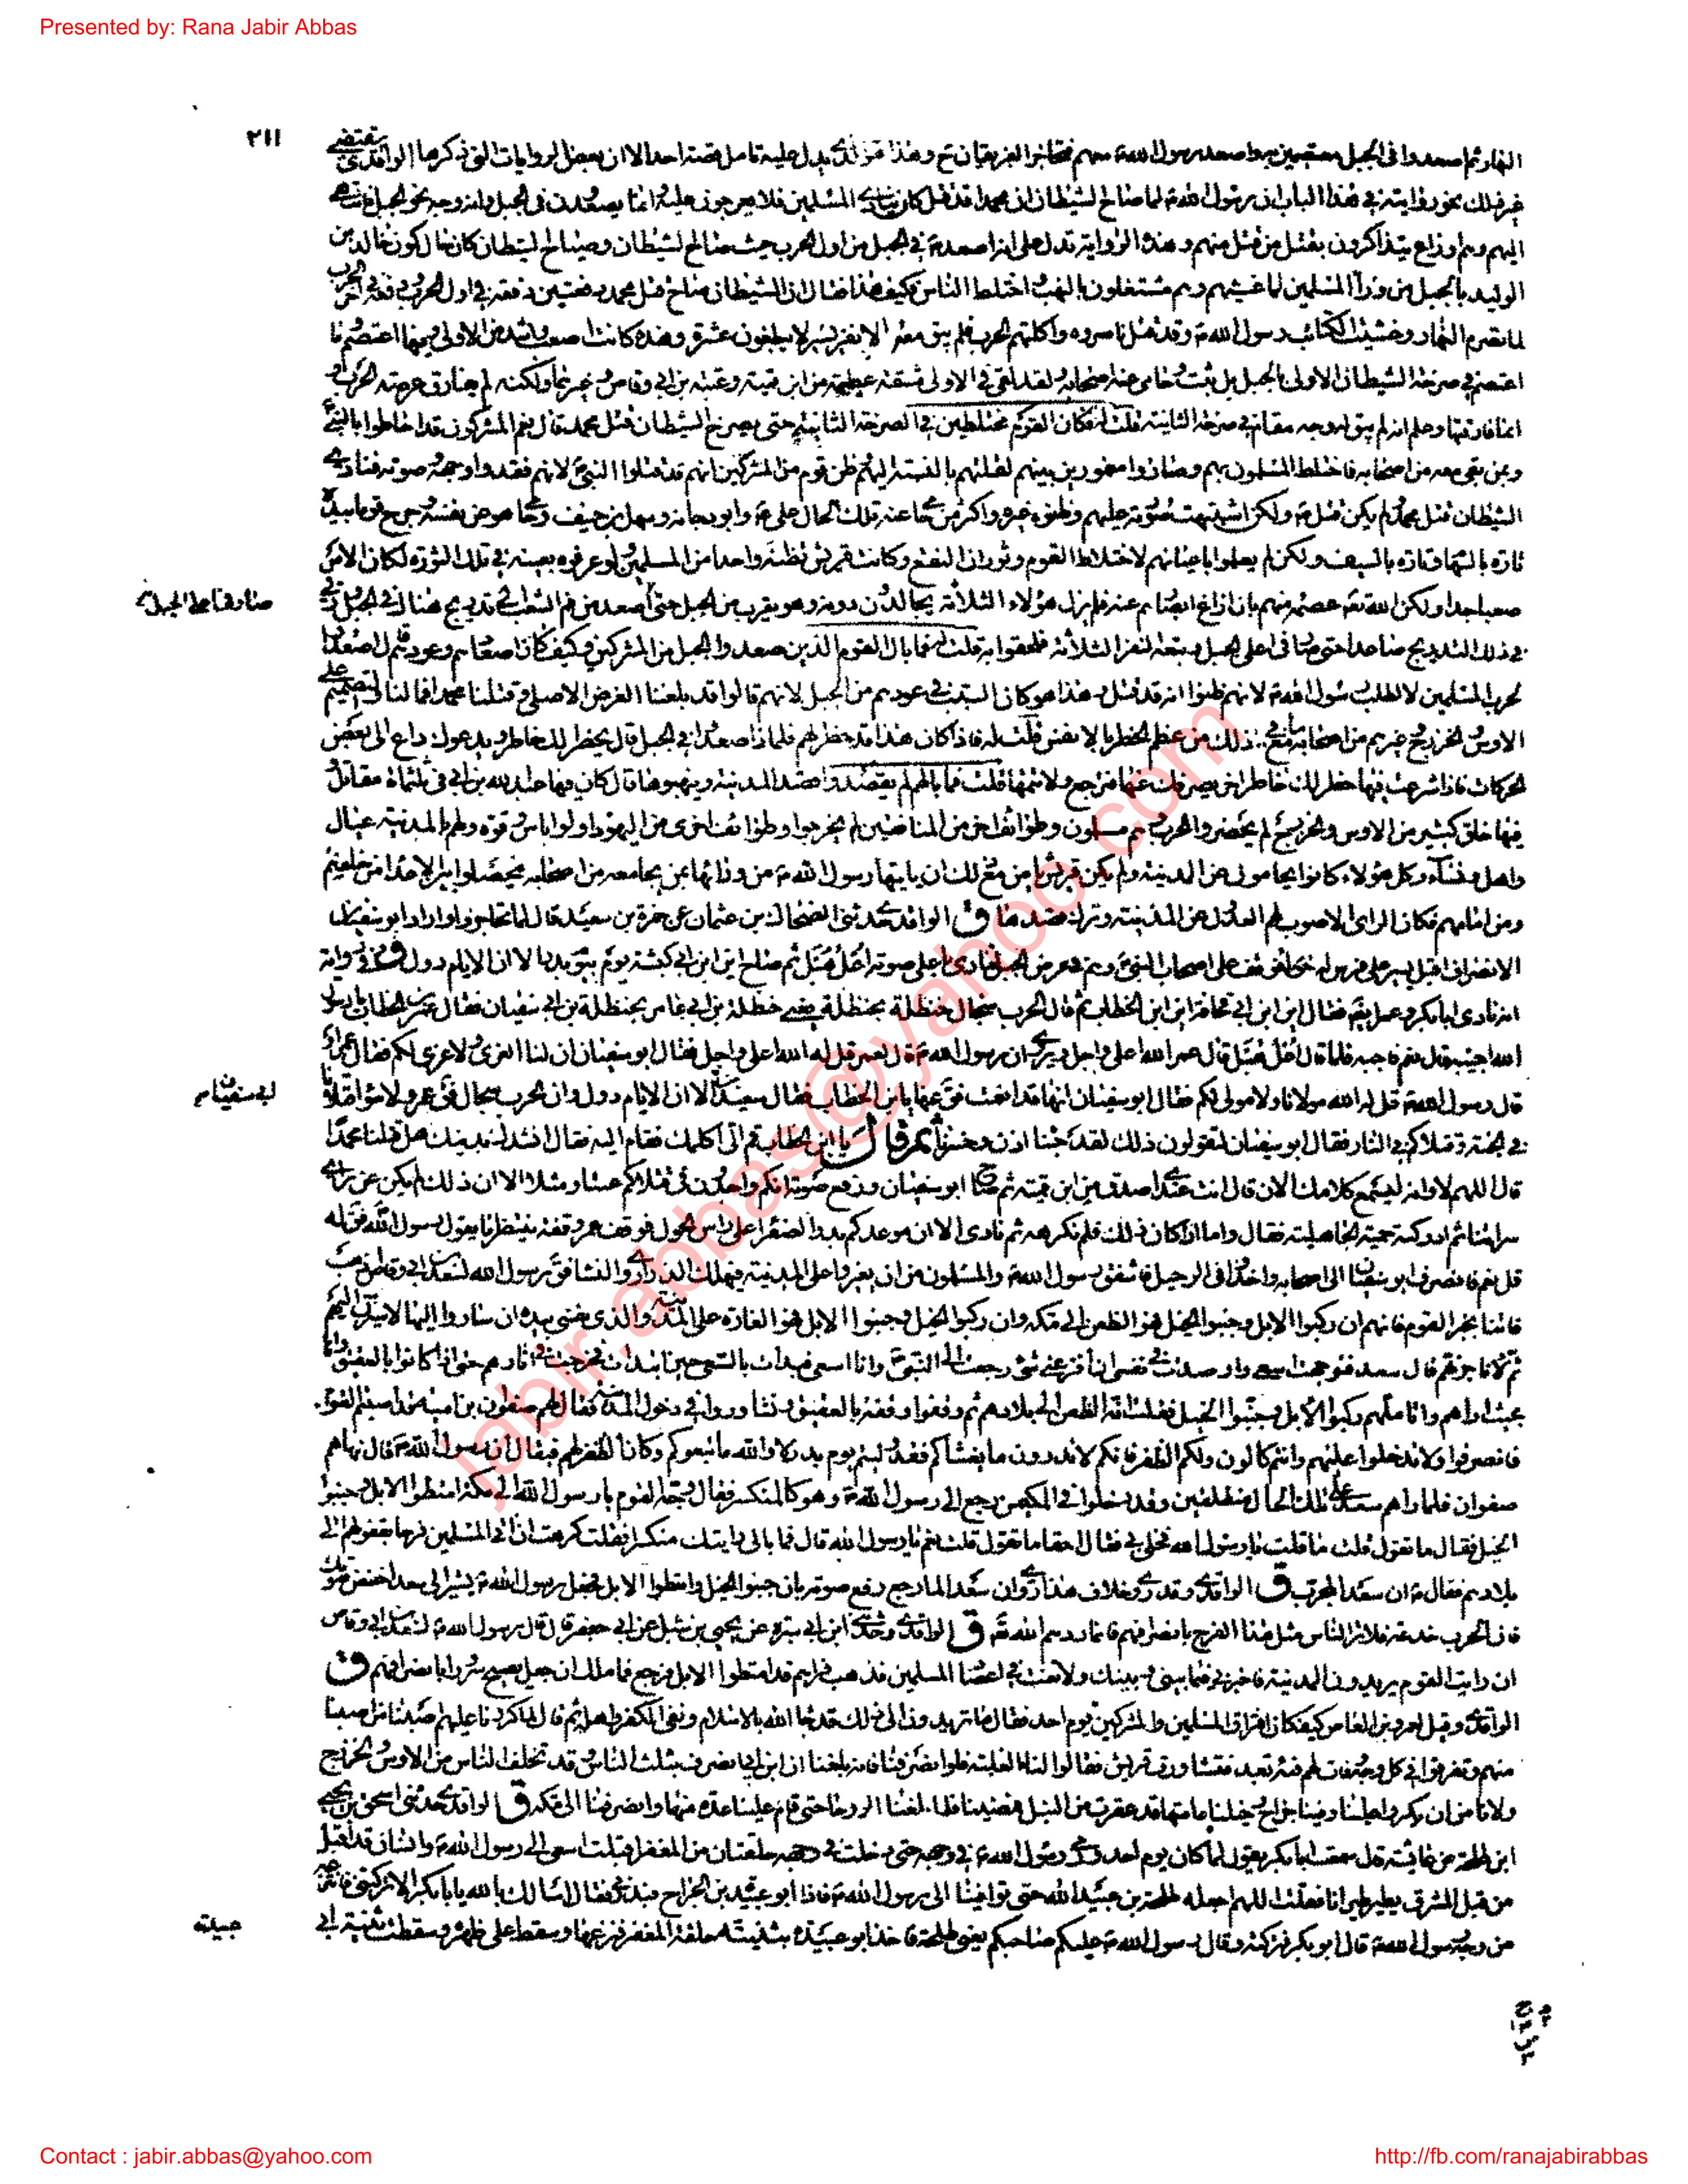 Presented by: Rana Jabir Abbas
٢١١
النهار ثم اصعدوا فى الجبل معتصمين به واصعد رسول الله معهم فتحاجز الفريقان ح وهذا هو الذى يدل عليه تامل قصة احد الا ان بعض الروايات التى ذكرها الواقدى يقتضى
غير ذلك نحو روايته فى هذا الباب ان رسول الله لما صاح الشيطان ان محمدا قد قتل كان ينادى المسلمين فلا يعرجون عليه انما يصعدون فى الجبل وانه وجه نحو الجبل فانتهى
اليهم وهم اوزاع يتذاكرون بقتل من قتل منهم وهذه الرواية تدل على انه اصعد فى الجبل من اول الحرب حيث صاح الشيطان وصياح الشيطان كان حال كون خالد بن
الوليد بالجبل من وراء المسلمين لما غشيهم وهم مشتغلون بالنهب واختلط الناس فكيف هذا فقال ان الشيطان صاح قتل محمد دفعتين دفعة فى اول الحرب ودفعة فى اخر الحرب
لما تصرم النهار وغشيت الكتائب رسول الله وقد قتل ناصروه واكلتهم الحرب فلم يبق معه الا نفر يسير لا يبلغون عشرة وهذه كانت اصعب واشد من الاولى وفيها اعتصم وما
اعتصم فى صرخة الشيطان الاولى بالجبل بل ثبت وحامى عنه اصحابه ولقد لقى فى الاولى مشقة عظيمة من ابن قميئة وعتبة بن ابى وقاص وغيرهما ولكنه لم يفارق عرصة الحرب و
انما فارقها وعلم انه لم يبق له وجه مقام فى صرخة الثانية قلت له فكان القوم مختلطين فى الصرخة الثانية حتى يصرخ الشيطان قتل محمد قال نعم المشركون قد احاطوا بالنبى
وبمن بقى معه من اصحابه فاختلط المسلمون بهم وصاروا مغمورين بينهم لقلتهم بالنسبة اليهم فظن قوم من المشركين انهم قد قتلوا النبى لانهم فقدوا وجهه وصوته فنادى
الشيطان قتل محمد ولم يكن قتل ولكن اشتبهت صورته عليهم وظنوه غيره واكثر من حامى عنه تلك الحال على وابو دجانة وسهل بن حنيف وحامى هو عن نفسه وجرح قوما بيده
تارة بالسهام وتارة بالسيف ولكن لم يعلموا باعيانهم لاختلاط القوم وثوران النقع وكانت قريش تظنه واحدا من المسلمين ولو عرفوه بعينه فى تلك الثورة لكان الامر
صعبا جدا ولكن الله تعالى عصمه منهم بان ازاغ ابصارهم عنه فلم يزل هؤلاء الثلاثة يجالدون دونه وهو يقرب من الجبل حتى اصعد من فم الشعب الى تدريج هناك فى الجبل ورقى
صار فى اعلى الجبل
فى ذلك التدريج صاعدا حتى صار فى اعلى الجبل وتبعه النفر الثلاثة فلحقوا به قلت له فما بال القوم الذين صعدوا الجبل من المشركين وكيف كان اصعادهم وعودهم قال اصعدوا
لحرب المسلمين لا لطلب رسول الله لانهم ظنوا انه قد قتل وهذا هو كان السبب فى عودهم من الجبل لانهم قالوا قد بلغنا الغرض الاصلى وقتلنا محمدا فما لنا والتصميم على
الاوس والخزرج وغيرهم من اصحابه مع ما فى ذلك من عظم الخطر بالانفس قلت له فاذا كان هذا قد خطر لهم فلماذا صعدوا فى الجبل قال يخطر لك خاطر ويدعوك داع الى بعض
الحركات فاذا شرعت فيها خطر لك خاطر اخر يصرفك عنها فترجع ولا تتمها قلت فما بالهم لم يقصدوا قصد المدينة وينهبوها قال كان فيها عبد الله بن ابى فى ثلثمائة مقاتل
فيها خلق كثير من الاوس والخزرج لم يحضروا الحرب وهم مسلمون وطوائف اخر من المنافقين لم يخرجوا وطوائف اخرى من اليهود اولوا باس وقوة ولهم بالمدينة عيال
واهل ونساء وكل هؤلاء كانوا يحامون عن المدينة ولم تكن قريش تامن مع ذلك ان ياتيها رسول الله من ورائها بمن يجامعه من اصحابه فيحصلوا بين الاعداء من خلفهم
ومن امامهم فكان الراى الاصوب لهم العدول عن المدينة وترك قصدها ق الواقدى حدثنى الضحاك بن عثمان عن حمزة بن سعيد قال لما تحاجزوا واراد ابو سفيان
الانصراف اقبل يسير على فرس له حتى وقف على اصحاب النبى وهم فى عرض الجبل فنادى باعلى صوته اعل هبل ثم صاح اين ابن ابى كبشة يوم بيوم بدر الا ان الايام دول وفى رواية
انه نادى ابا بكر وعمر ايضا فقال اين ابن ابى قحافة اين ابن الخطاب ثم قال الحرب سجال حنظلة بحنظلة يعنى حنظلة بن ابى عامر بحنظلة بن ابى سفيان فقال عمر بن الخطاب يا رسول
الله اجيبه قال نعم فاجبه فلما قال اعل هبل قال عمر الله اعلى واجل ويروى ان رسول الله قال لعمر قل له الله اعلى واجل فقال ابو سفيان ان لنا العزى ولا عزى لكم فقال عمر او
قال رسول الله قل له الله مولانا ولا مولى لكم فقال ابو سفيان انها قد انعمت فعال عنها يا ابن الخطاب فقال سعيد الا ان الايام دول وان الحرب سجال فقال عمر ولا سواء قتلانا
ابى سفيان
فى الجنة وقتلاكم فى النار فقال ابو سفيان انكم لتقولون ذلك لقد خبنا اذن وخسرنا ثم قال يا ابن الخطاب قم الى اكلمك فقام اليه فقال انشدك بدينك هل قتلنا محمدا
قال اللهم لا وانه ليسمع كلامك الان قال انت عندى اصدق من ابن قميئة ثم صاح ابو سفيان ورفع صوته انكم واجدون فى قتلاكم عيثا ومثلا الا ان ذلك لم يكن عن راى
سراتنا ثم ادركته حمية الجاهلية فقال واما اذ كان ذلك فلم نكرهه ثم نادى الا ان موعدكم بدر الصفراء على راس الحول فوقف عمر وقفة ينتظر ما يقول رسول الله فقال له
قل نعم فانصرف ابو سفيان الى اصحابه واخذوا فى الرحيل فاشفق رسول الله والمسلمون من ان يغيروا على المدينة فيهلك الذرارى والنساء فقال رسول الله لسعد بن ابى وقاص اذهب
فاتنا بخبر القوم فانهم ان ركبوا الابل وجنبوا الخيل فهو الظعن الى مكة وان ركبوا الخيل وجنبوا الابل فهو الغارة على المدينة والذى نفسى بيده ان ساروا اليها لاسيرن اليهم
ثم لاناجزنهم قال سعد فتوجهت اسعى وارصدت فى نفسى ان افزعنى شئ رجعت الى النبى وانا اسعى فبدات بالسعى حين ابتدات فخرجت فى اثارهم حتى اذا كانوا بالعقيق وانا
بحيث اراهم واتاملهم ركبوا الابل وجنبوا الخيل فقلت انه الظعن الى بلادهم ثم وقفوا وقفة بالعقيق وتشاوروا فى دخول المدينة فقال لهم صفوان بن امية قد اصبتم القوم
فانصرفوا ولا تدخلوا عليهم وانتم كالون ولكم الظفر فانكم لا تدرون ما يغشاكم فقد وليتم يوم بدر لا والله ما تبعوكم وكان الظفر لهم فيقال ان رسول الله قال نهاهم
صفوان فلما راهم سعد على تلك الحال منطلقين وقد دخلوا فى المكيمن رجع الى رسول الله وهو كالمنكسر فقال وجه القوم يا رسول الله الى مكة امتطوا الابل وجنبوا
الخيل فقال ما تقول قلت ما قلت يا رسول الله فخلا بى فقال احقا ما تقول قلت نعم يا رسول الله قال فما بالى رايتك منكسرا فقلت كرهت ان اتى المسلمين فرحا بقفولهم الى
بلادهم فقال ان سعدا لمجرب ق الواقدى وقد روى خلاف هذا روى ان سعدا لما رجع رفع صوته بان جنبوا الخيل وامتطوا الابل فجعل رسول الله يشير الى سعد اخفض صوتك
فان الحرب خدعة فلا ترى الناس مثل هذا الفرح بانصرافهم فانما ردهم الله تعالى ق الواقدى وحدثنى ابن ابى سبرة عن يحيى بن شبل عن ابى جعفر قال قال رسول الله لسعد بن ابى وقاص
ان رايت القوم يريدون المدينة فاخبرنى فيما بينى وبينك ولا تفت فى اعضاد المسلمين فذهب فراهم قد امتطوا الابل فرجع فما ملك ان جعل يصيح سرورا بانصرافهم ق
الواقدى وقيل لعمرو بن العاص كيف كان افتراق المسلمين والمشركين يوم احد فقال ما تريدون الى ذلك قد جاء الله بالاسلام ونفى الكفر واهله ثم قال لما كررنا عليهم اصبنا من اصبنا
منهم وتفرقوا فى كل وجه وفاءت لهم فئة بعد فتشاورت قريش فقالوا لنا الغلبة فلو انصرفنا فانه بلغنا ان ابن ابى انصرف بثلث الناس وقد تخلف الناس من الاوس والخزرج
ولا نامن ان يكروا علينا وفينا جراح وخيلنا عامتها قد عقرت من النبل فمضينا فما بلغنا الروحاء حتى قام علينا عدة منها وانصرفنا الى مكة ق الواقدى حدثنى اسحق بن يحيى
ابن طلحة عن عائشة قالت سمعت ابا بكر يقول لما كان يوم احد ورمى رسول الله فى وجهه حتى دخلت فى وجهه حلقتان من المغفر اقبلت اسعى الى رسول الله وانسان قد اقبل
من قبل المشرق يطير طيرانا فقلت اللهم اجعله طلحة بن عبيد الله حتى توافينا الى رسول الله فاذا ابو عبيدة بن الجراح فبدرنى فقال اسالك بالله يا ابا بكر الا تركتنى فانزعه
من وجه رسول الله قال ابو بكر فتركته وقال رسول الله عليكم صاحبكم يعنى طلحة فاخذ ابو عبيدة بثنيته حلقة المغفر فنزعها وسقط على ظهره وسقطت ثنية ابى
عبيدة
jabir.abbas@yahoo.com
Contact : jabir.abbas@yahoo.com
http://fb.com/ranajabirabbas